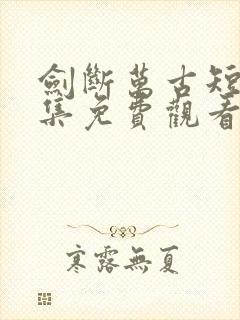 劍斷萬古短
集免費觀看
寒露無夏